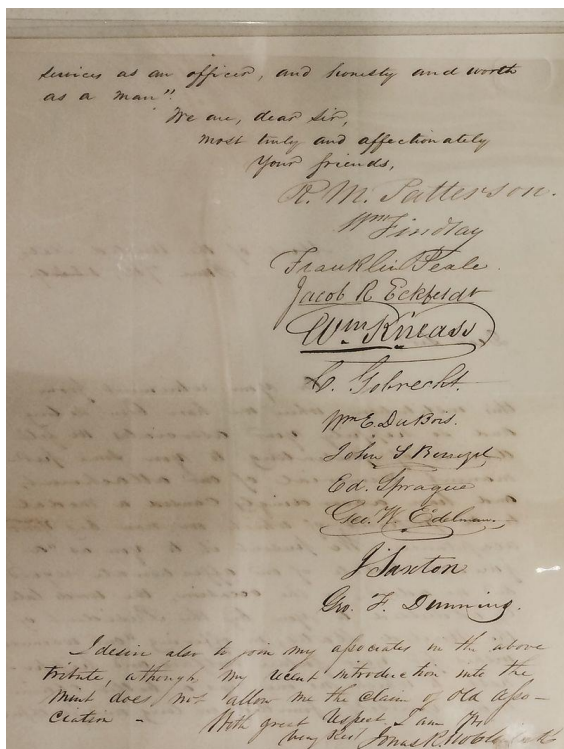 services as an officer, and honesty and worth
as a man".
We are, dear Sir,
most truly and affectionately
Your friends,
R. M. Patterson.
Wm Findlay
Franklin Peale.
Jacob R Eckfeldt
Wm Kneass
C. Gobrecht.
Wm E. DuBois.
John S
Ed. Sprague
Geo. W. Edelman
J Saxton
Geo. F. Dunning.
I desire also to join my associates in the above
tribute, athough my recent introduction into the
Mint does not allow me the claim of old asso-
ciation -
With great respect I am
very Resp Jonas R.